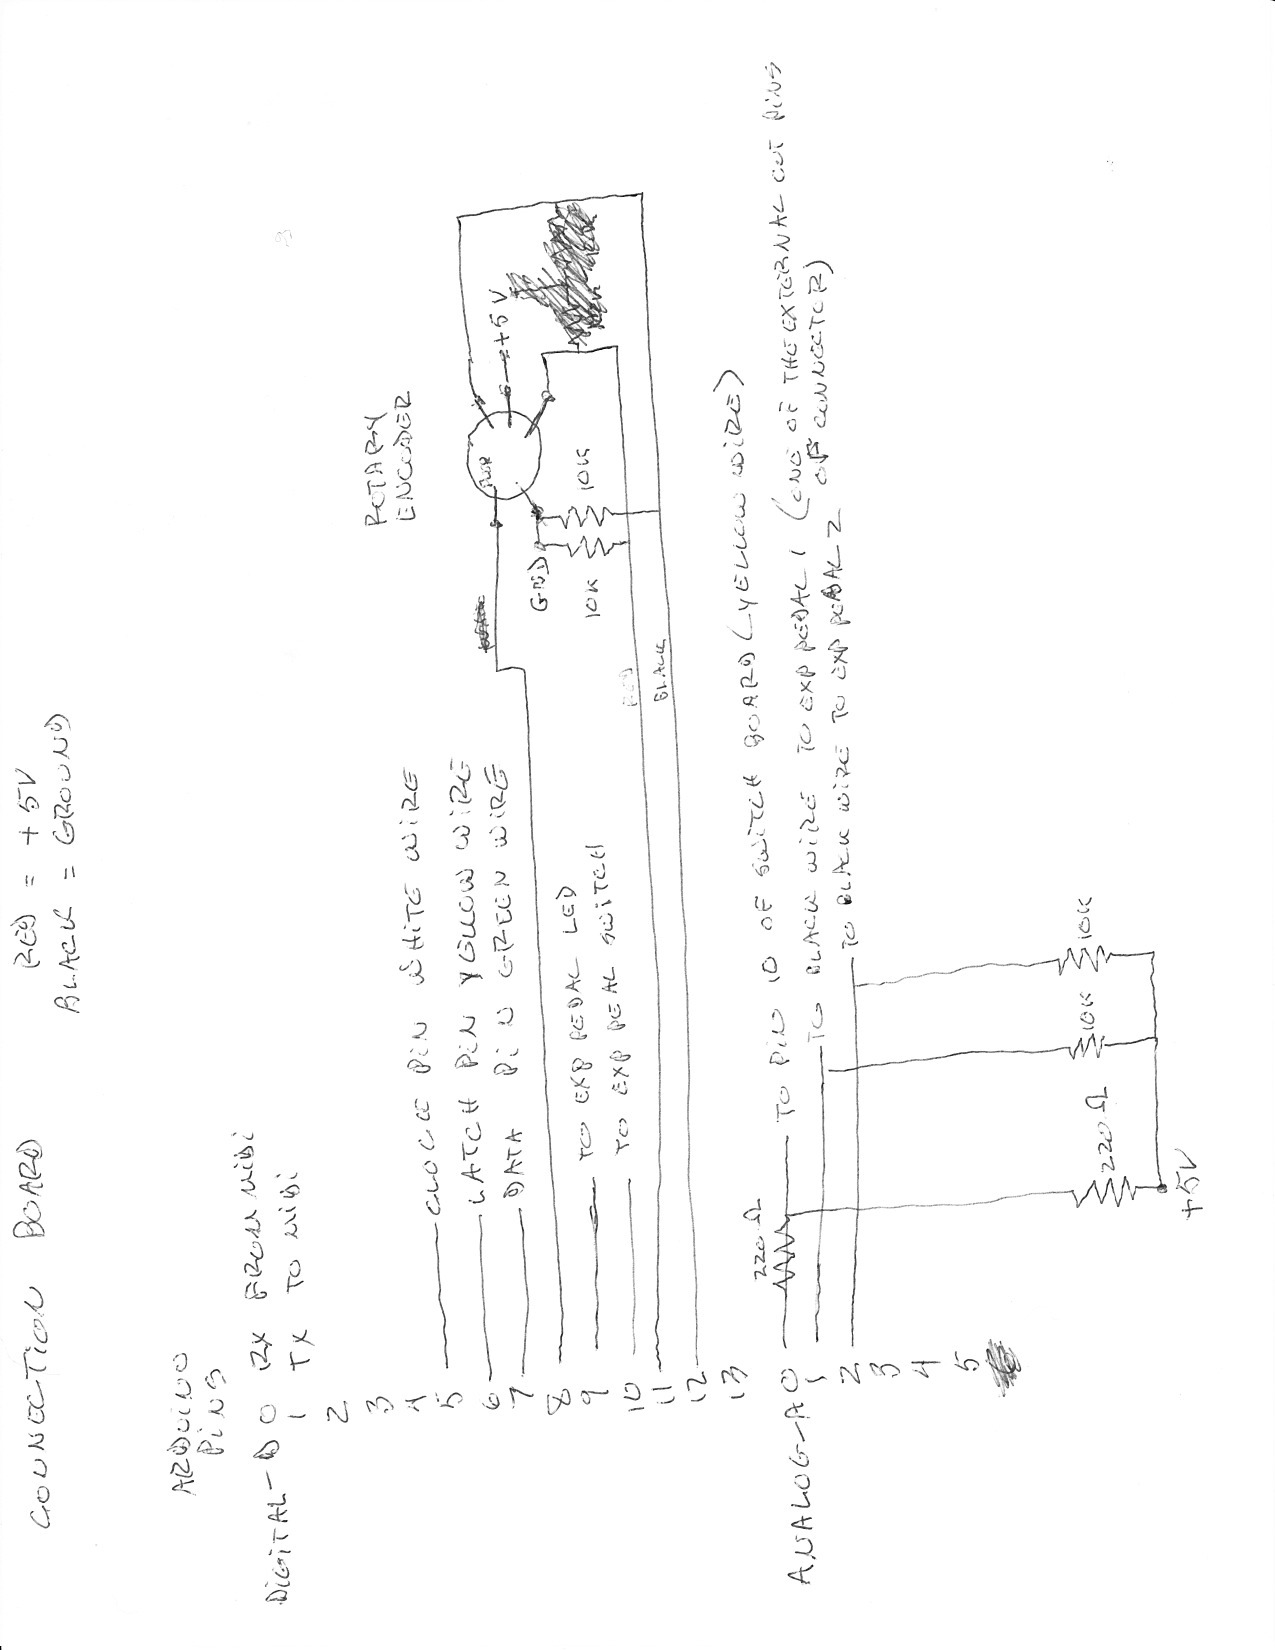 CONNECTION BOARD
RED = +5V
BLACK = GROUND
ARDUINO
PINS
DIGITAL - D 0 RX FROM MIDI
1 TX TO MIDI
2
3
4
5 CLOCK PIN WHITE WIRE
6 LATCH PIN YELLOW WIRE
7 DATA PIN GREEN WIRE
8
9 TO EXP PEDAL LED
10 TO EXP PEAL SWITCH
11
12
13
ROTARY
ENCODER
PWR
+5V
GND
10K
10K
RED
BLACK
ANALOG - A 0 220Ω TO PIN 10 OF SWITCH BOARD (YELLOW WIRE)
1 TO BLACK WIRE TO EXP PEDAL 1 (ONE OF THE EXTERNAL OUT PINS
OF CONNECTOR)
2 TO BLACK WIRE TO EXP PEDAL 2
3
4
5
220Ω
10K
10K
+5V